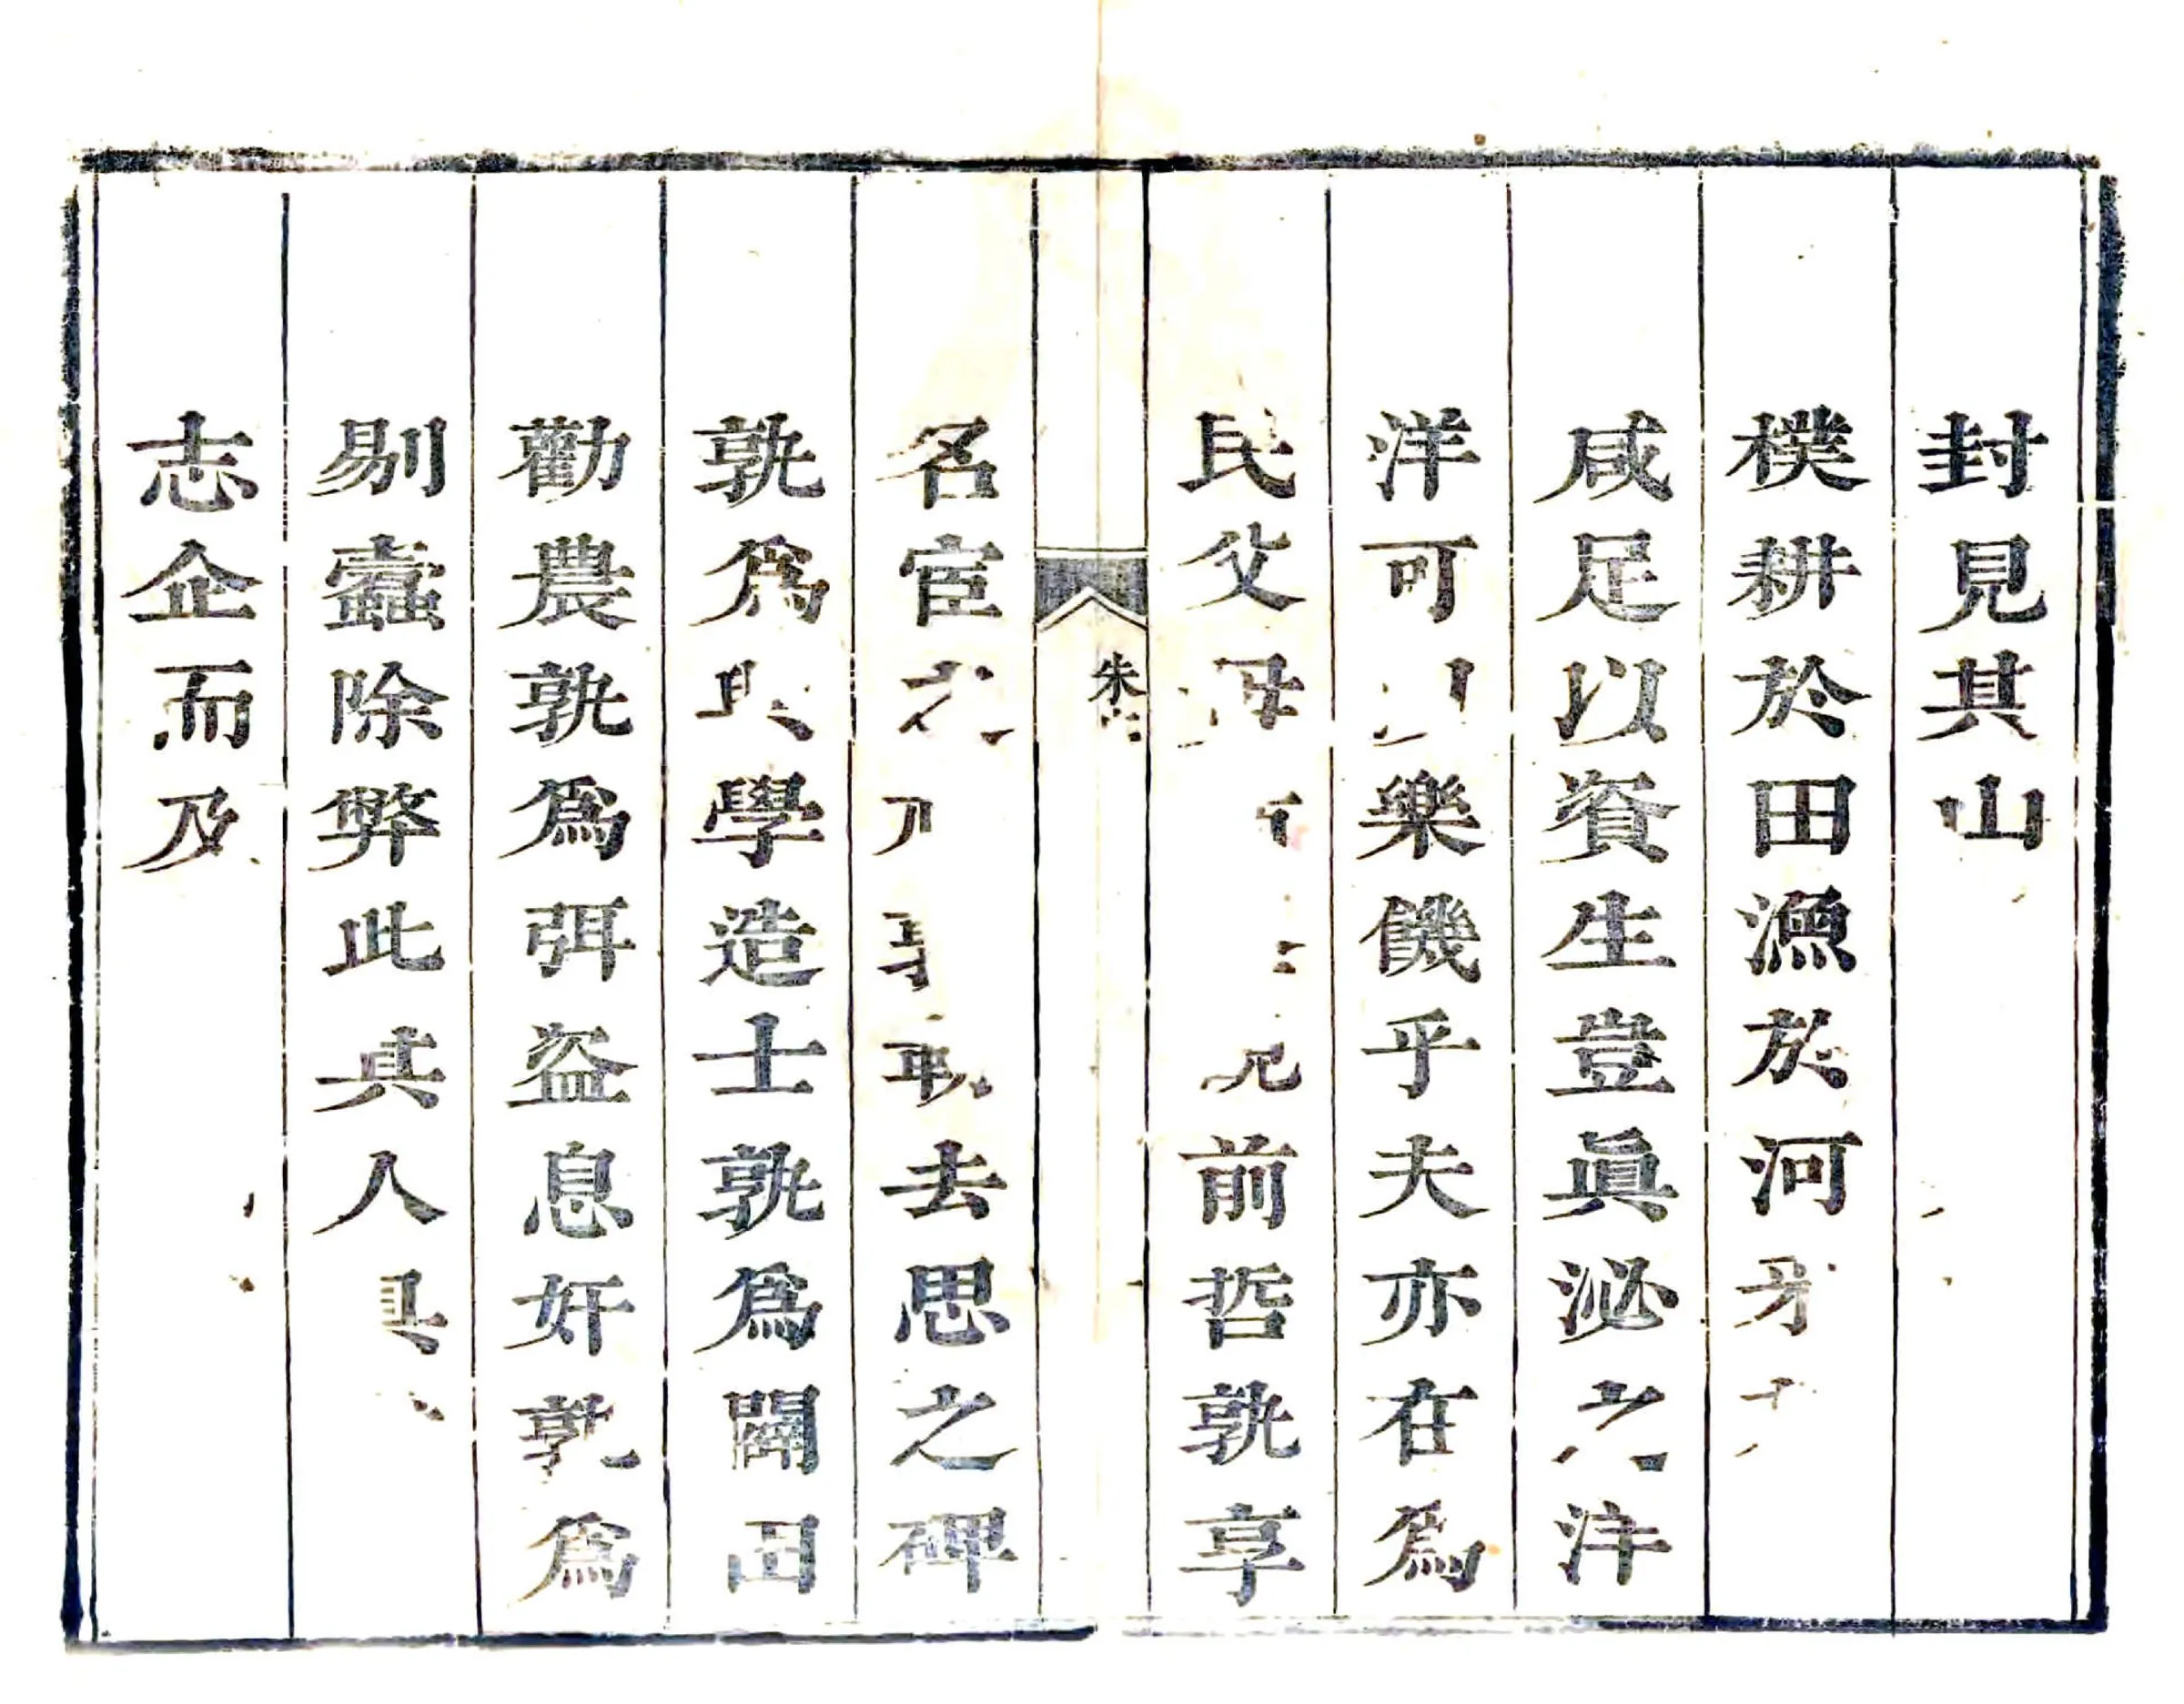 封見其山
樸耕於田漁於河
咸足以資生豈眞泌之洋
洋可樂饑乎夫亦在爲
民父母前哲孰享
名宦之去思之碑
孰爲興學造士孰爲闢田
勸農孰爲弭盜息奸孰爲
剔蠹除弊此其人具
志企而及
朱